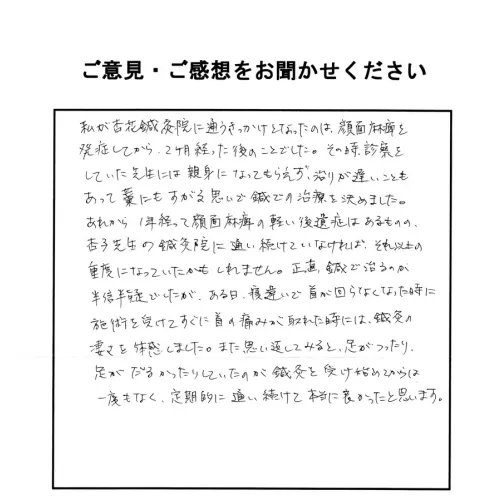 ご意見・ご感想をお聞かせください
私が杏花鍼灸院に通うきっかけとなったのは、顔面麻痺を
発症してから、2ヶ月経った後のことでした。その時、診察を
していた先生には親身になってもらえず、治りが遅いことも
あって藁にもすがる思いで鍼での治療を決めました。
あれから1年経って顔面麻痺の軽い後遺症はあるものの、
杏子先生の鍼灸院に通い続けていなければ、それ以上の
重度になっていたかもしれません。正直、鍼で治るのか
半信半疑でしたが、ある日、寝違いで首が回らなくなった時に
施術を受けてすぐに首の痛みが取れた時には、鍼灸の
凄さを体感しました。また思い返してみると、足がつったり、
足がだるかったりしていたのが鍼灸を受け始めてからは
一度もなく、定期的に通い続けて本当に良かったと思います。